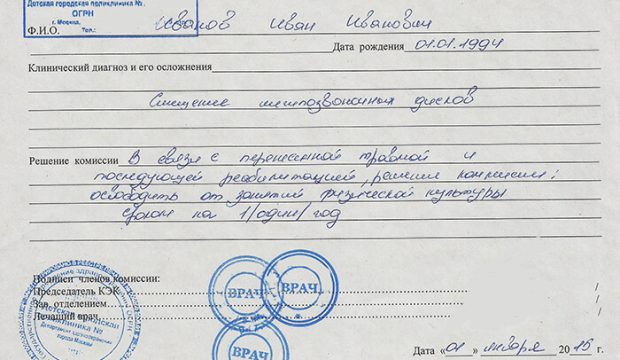 Детская городская поликлиника №
ОГРН
г. Москва, Тел.:
Ф.И.О. Иванов Иван Иванович
Дата рождения 01.01.1994
Клинический диагноз и его осложнения
Смещение межпозвоночных дисков
Решение комиссии В связи с перенесенной травмой и
последующей реабилитацией, решение комиссии:
освободить от занятий физической культуры
сроком на 1/один/ год
Подписи членов комиссии:
Председатель КЭК
Зав. отделением
Лечащий врач
ВРАЧ
ВРАЧ
ВРАЧ
Детская городская
поликлиника №
города Москвы
Дата «01» января 2015 г.